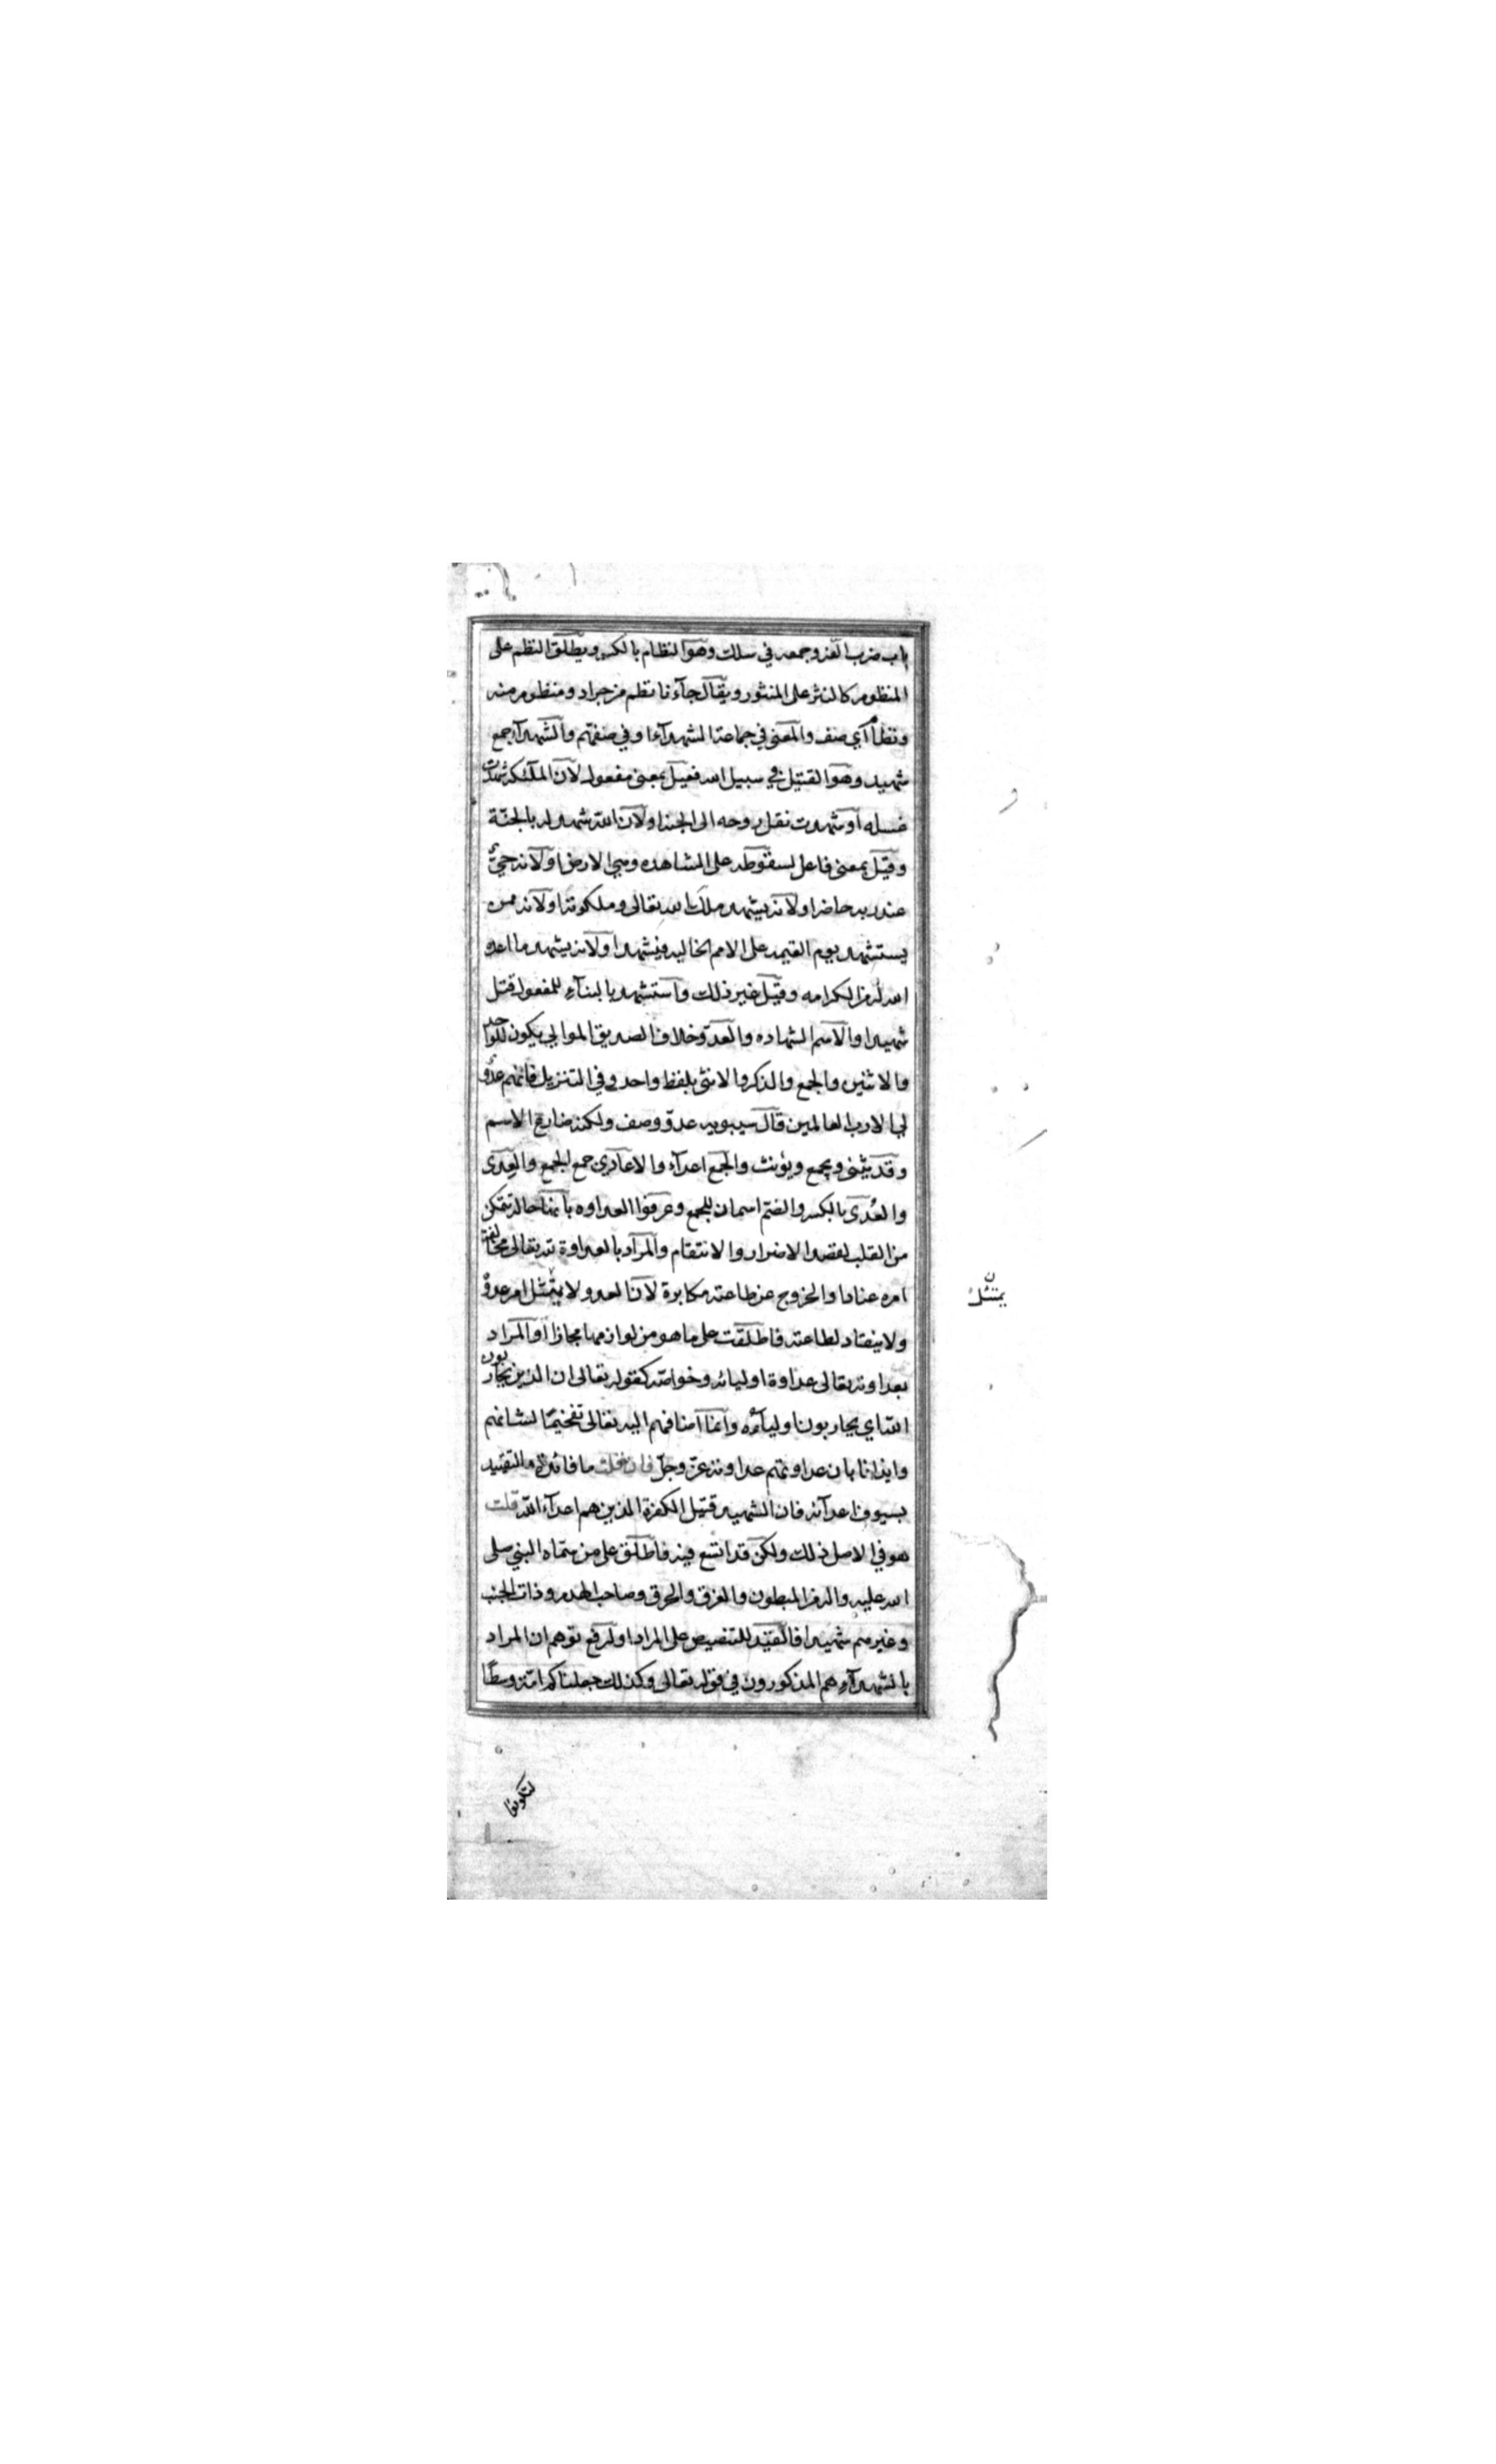 باب ضرب الفته وجمعه في سلك وهو النظام بالكسر ويطلق النظم على
المنظوم كالنثر على المنثور ويقال جآءنا نظم من جراد ومنظوم منه
ونظام اي صف والمعنى في جماعة الشهدآء او في صفتهم والشهدآء جمع
شهيد وهو القتيل في سبيل الله فعيل بمعنى مفعول لان الملآئكة شهدت
غسله او شهدت نقل روحه الى الجنة او لان الله شهد له بالجنّة
وقيل بمعنى فاعل لسقوطه على المشاهدة وهي الارض او لانه حيّ
عند ربه حاضر او لانه يشهد ملك الله تعالى وملكوته او لانه ممن
يستشهد يوم القيمة على الامم الخالية فيشهد او لانه يشهد ما اعد
الله له من الكرامه وقيل غير ذلك واستشهد بالبنآء للمفعول قتل
شهيدا والاسم الشهاده والعدوّ خلاف الصديق الموالي يكون للواحد
والاثنين والجمع والذكر والانثى بلفظ واحد وفي التنزيل فانهم عدوّ
لي الا رب العالمين قال سيبويه عدوّ وصف ولكنه ضارع الاسم
وقد يثنى ويجمع ويؤنث والجمع اعدآء والاعادي جمع الجمع والعِدَى
والعُدَى بالكسر والضم اسمان للجمع وعرفوا العداوه بانها حالة تتمكن
من القلب لقصد الاضرار والانتقام والمراد بالعداوة لله تعالى مخالفة
امره عنادا والخروج عن طاعته مكابرة لان العدو لا يمتثل امر عدوّ
ولا ينقاد لطاعته فاطلقت على ما هو من لوازمها مجازا او المراد
بعداوته تعالى عداوة اوليائه وخواصّه كقوله تعالى ان الذين يحاربون
الله اي يحاربون اوليآءه وانما اضافهم اليه تعالى تفخيمًا لشانهم
وايذانا بان عداوتهم عداوته عزّ وجلّ فان قلت ما فائدة التقييد
بسيوف اعدآئه فان الشهيد قتيل الكفرة الذين هم اعدآء الله قلت
هو في الاصل ذلك ولكن قد اتسع فيه فاطلق على من سمّاه النبي صلى
الله عليه واله من المبطون والغرق والحرق وصاحب الهدم وذات الجنب
وغيرهم شهيدا فالتقييد للتنصيص على المراد او لرفع توهم ان المراد
بالشهدآء هم المذكورون في قوله تعالى وكذلك جعلناكم امّة وسطًا
يمتثل
لتكونوا